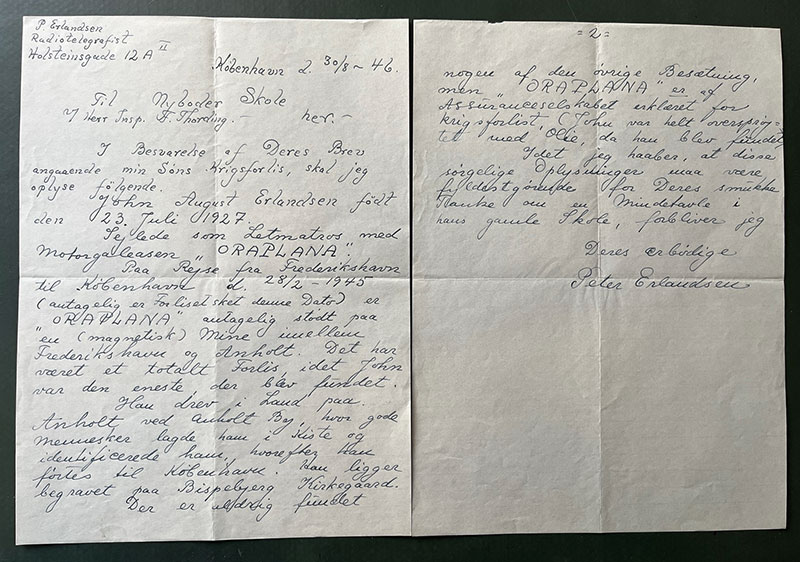 P. Erlandsen
Radiotelegrafist
Holsteinsgade 12 A II
København d. 30/8 - 46.
Til Nyboder Skole
V/ Herr Insp. F. Thording.- her.-
I Besvarelse af Deres Brev
angaaende min Søns Krigsforlis, skal jeg
oplyse følgende.
John August Erlandsen født
den 23. Juli 1927.
Sejlede som Letmatros med
Motorgaleasen „ORAPLANA".
Paa Rejse fra Frederikshavn
til København d. 28/2 - 1945
(antagelig er Forliset sket denne Dato) er
„ORAPLANA" antagelig stødt paa
en (magnetisk) Mine imellem
Frederikshavn og Anholt. Det har
været et totalt Forlis, idet John
var den eneste, der blev fundet.
Han drev i Land paa
Anholt ved Anholt By, hvor gode
Mennesker lagde ham i Kiste og
identificerede ham, hvorefter Han
førtes til København. Han ligger
begravet paa Bispebjerg Kirkegaard.
Der er aldrig fundet
= 2 =
nogen af den øvrige Besætning,
men „ORAPLANA" er af
Assuranceselskabet erklæret for
krigsforlist, (John var helt oversprøj-
tet med Olie, da han blev fundet
Idet jeg haaber, at disse
sørgelige Oplysninger maa være
fyldestgørende for Deres smukke
Tanke om en Mindetavle i
hans gamle Skole, forbliver jeg
Deres ærbødige
Peter Erlandsen